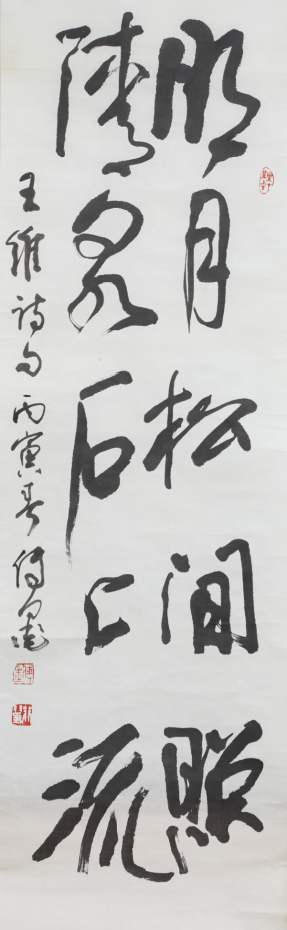 明月松間照
清泉石上流
王維詩句 丙寅春